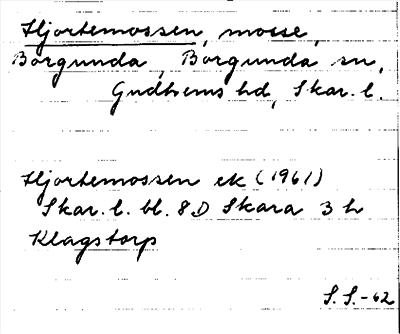 Hjortemossen, mosse,
Borgunda, Borgunda sn,
Gudhems hd, Skar. l.
Hjortemossen ek (1961)
Skar. l. bl. 8D Skara 3 h
Klagstorp
S. S. -62